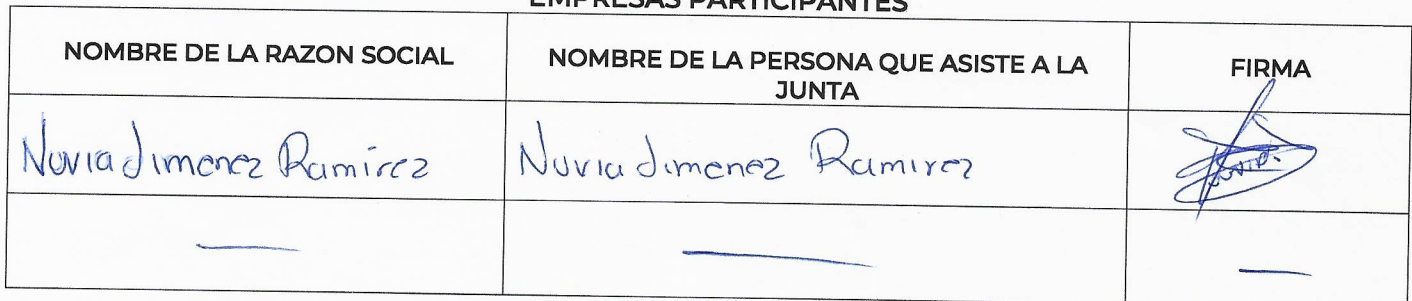 EMPRESAS PARTICIPANTES
NOMBRE DE LA RAZON SOCIAL
NOMBRE DE LA PERSONA QUE ASISTE A LA
JUNTA
FIRMA
Nuvia Jimenez Ramirez
Nuvia Jimenez Ramirez